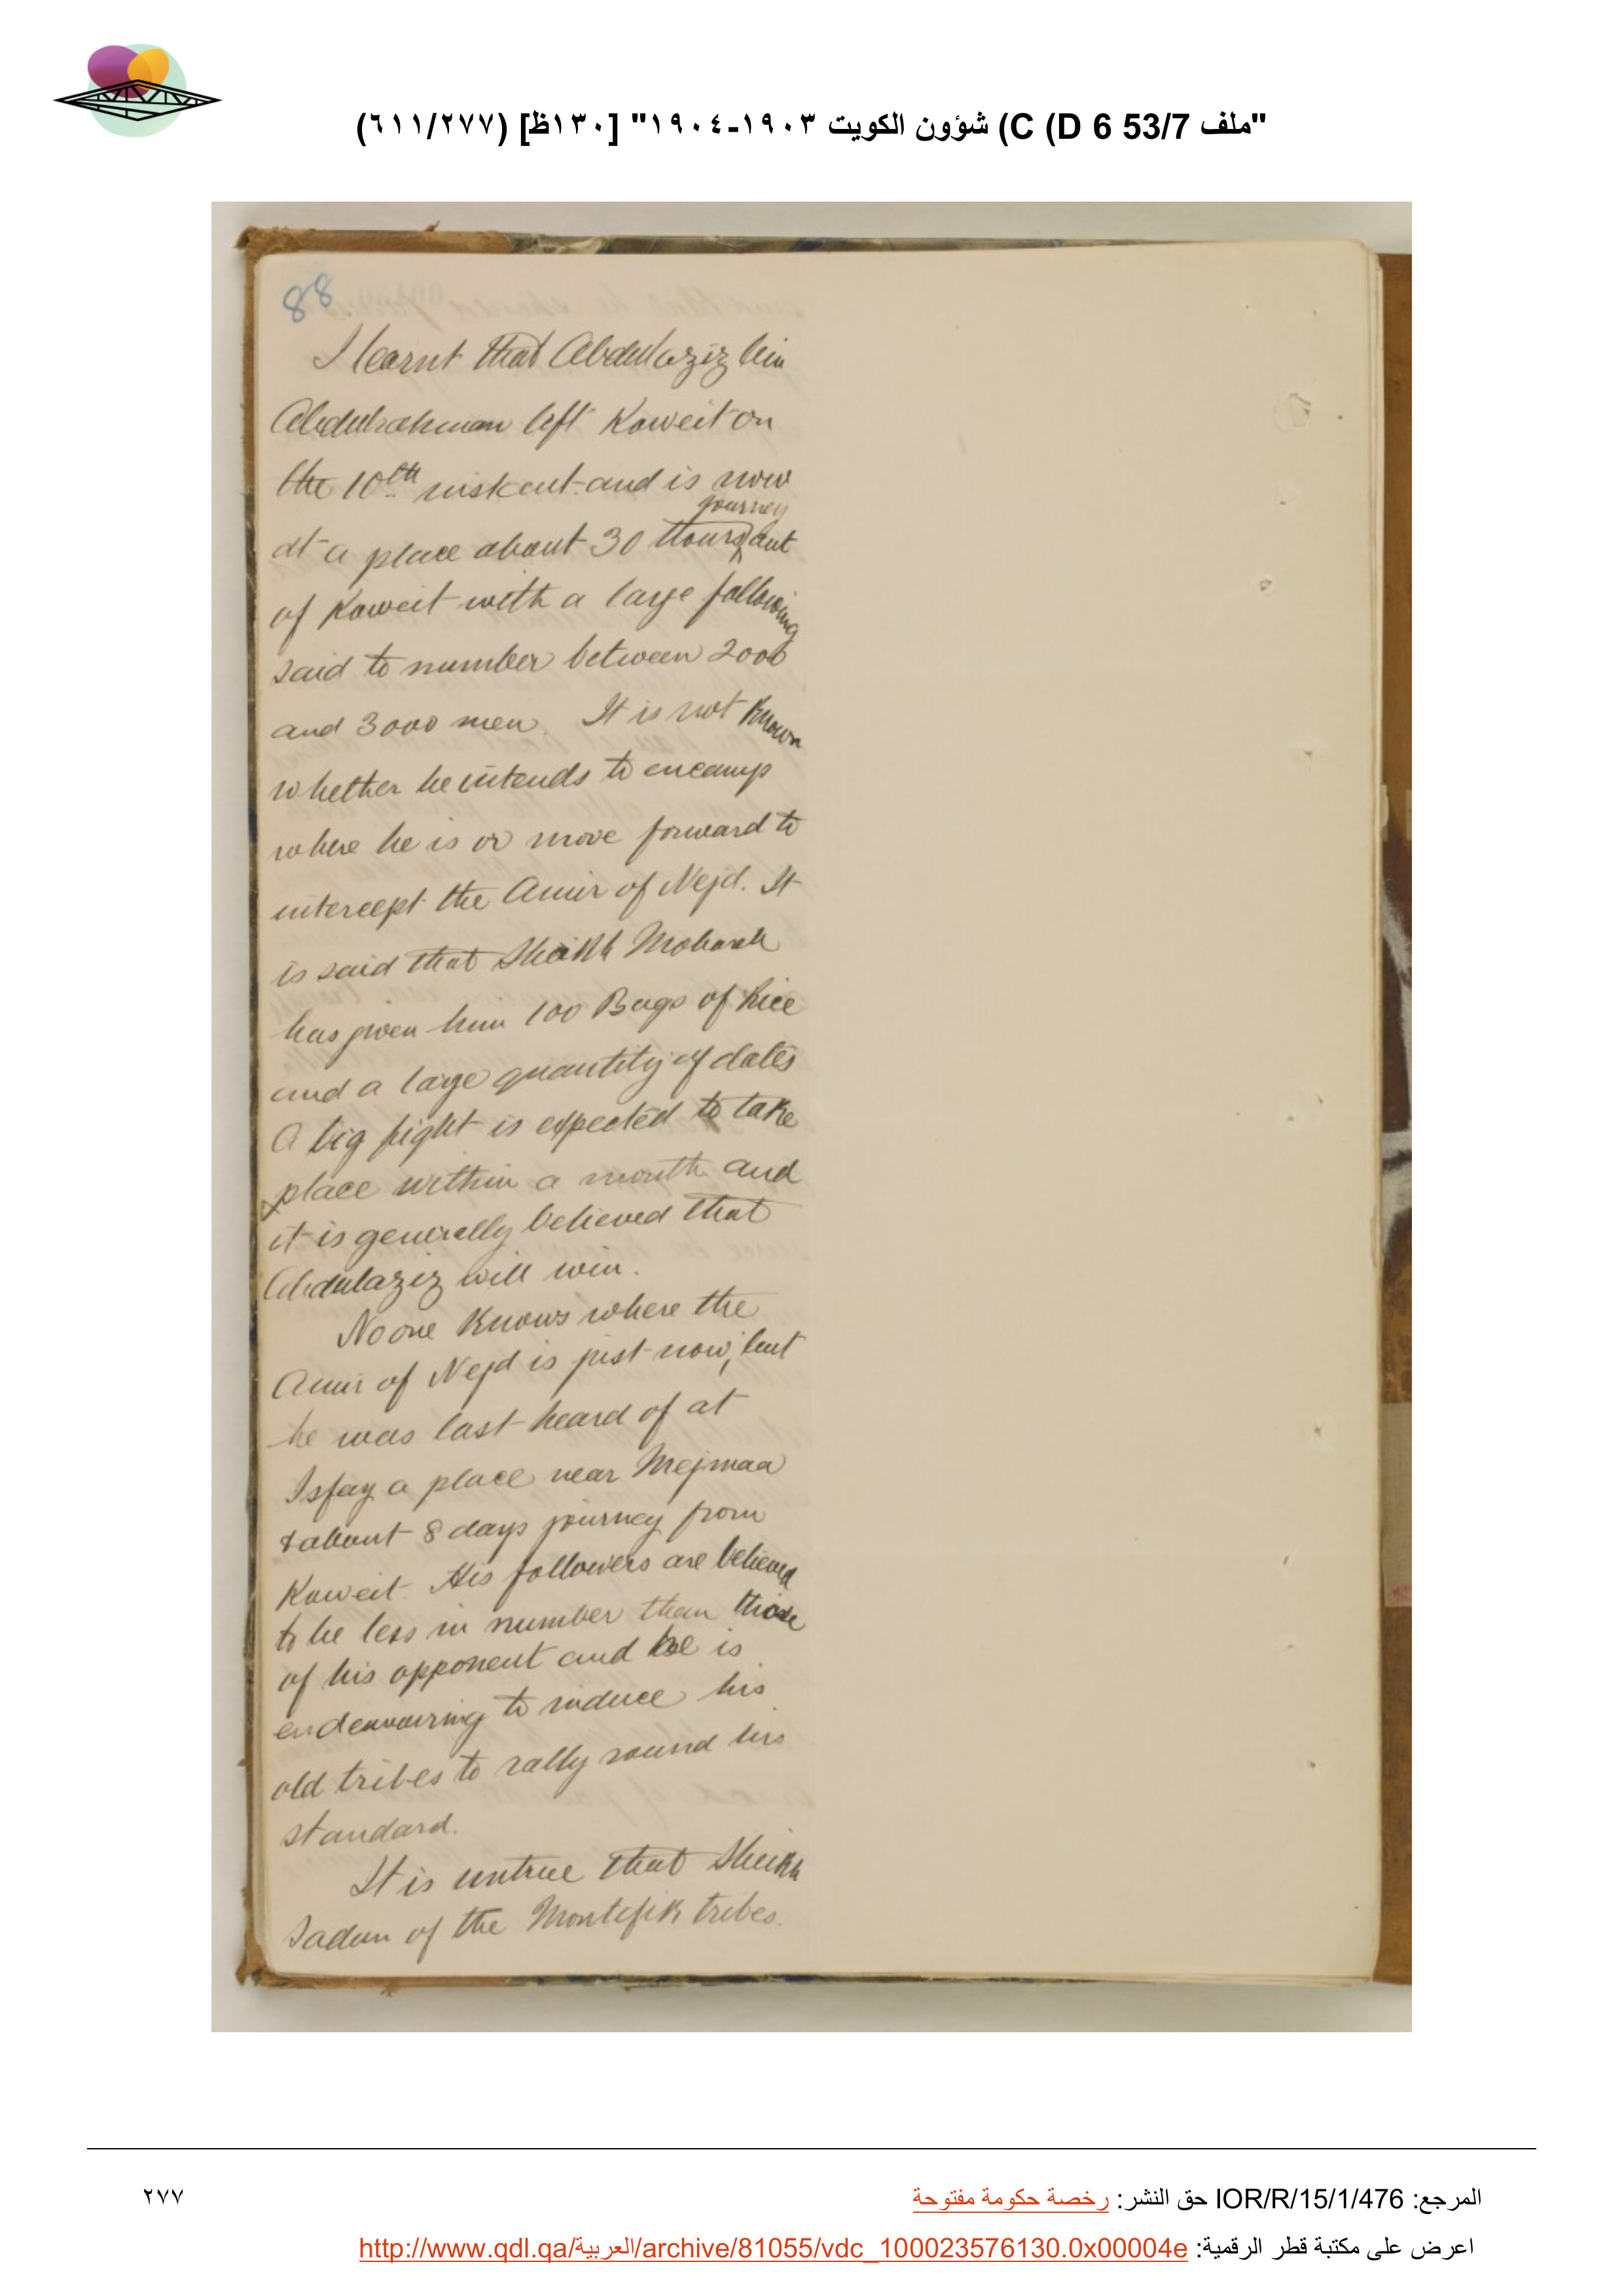 "ملف 53/7 C (D 6) شؤون الكويت ١٩٠٣-١٩٠٤" [١٣٠ظ] (٦١١/٢٧٧)
88
I learnt that Abdulaziz bin
Abdulrahman left Koweit on
the 10th instant and is now
journey
at a place about 30 hours out
of Koweit with a large following
said to number between 2000
and 3000 men. It is not known
whether he intends to encamp
where he is or move forward to
intercept the Amir of Nejd. It
is said that Sheikh Mobarak
has given him 100 Bags of Rice
and a large quantity of dates
A big fight is expected to take
place within a month and
it is generally believed that
Abdulaziz will win.
No one knows where the
Amir of Nejd is just now, but
he was last heard of at
Isfay a place near Mejmaa
& about 8 days journey from
Koweit. His followers are believed
to be less in number than those
of his opponent and he is
endeavouring to induce his
old tribes to rally round his
standard.
It is untrue that Sheikh
Sadun of the Montefik tribes.
المرجع: IOR/R/15/1/476 حق النشر: رخصة حكومة مفتوحة
٢٧٧
اعرض على مكتبة قطر الرقمية: http://www.qdl.qa/العربية/archive/81055/vdc_100023576130.0x00004e